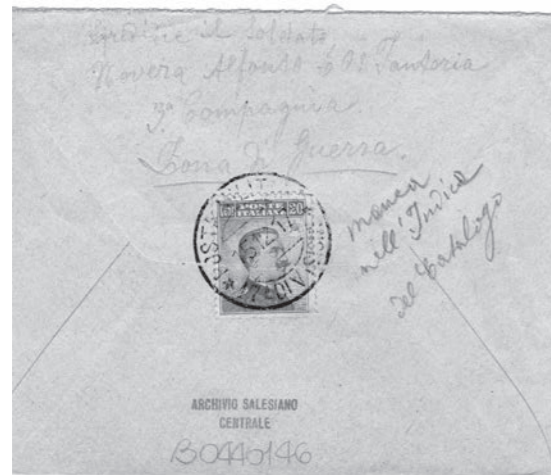 il soldato
Novera Alfonso Fanteria
3ª Compagnia
Zona di Guerra.
POSTE
ITALIANE
20
POSTA MILIT
manca
nell'Indice
del Catalogo
ARCHIVIO SALESIANO
CENTRALE
B0440146